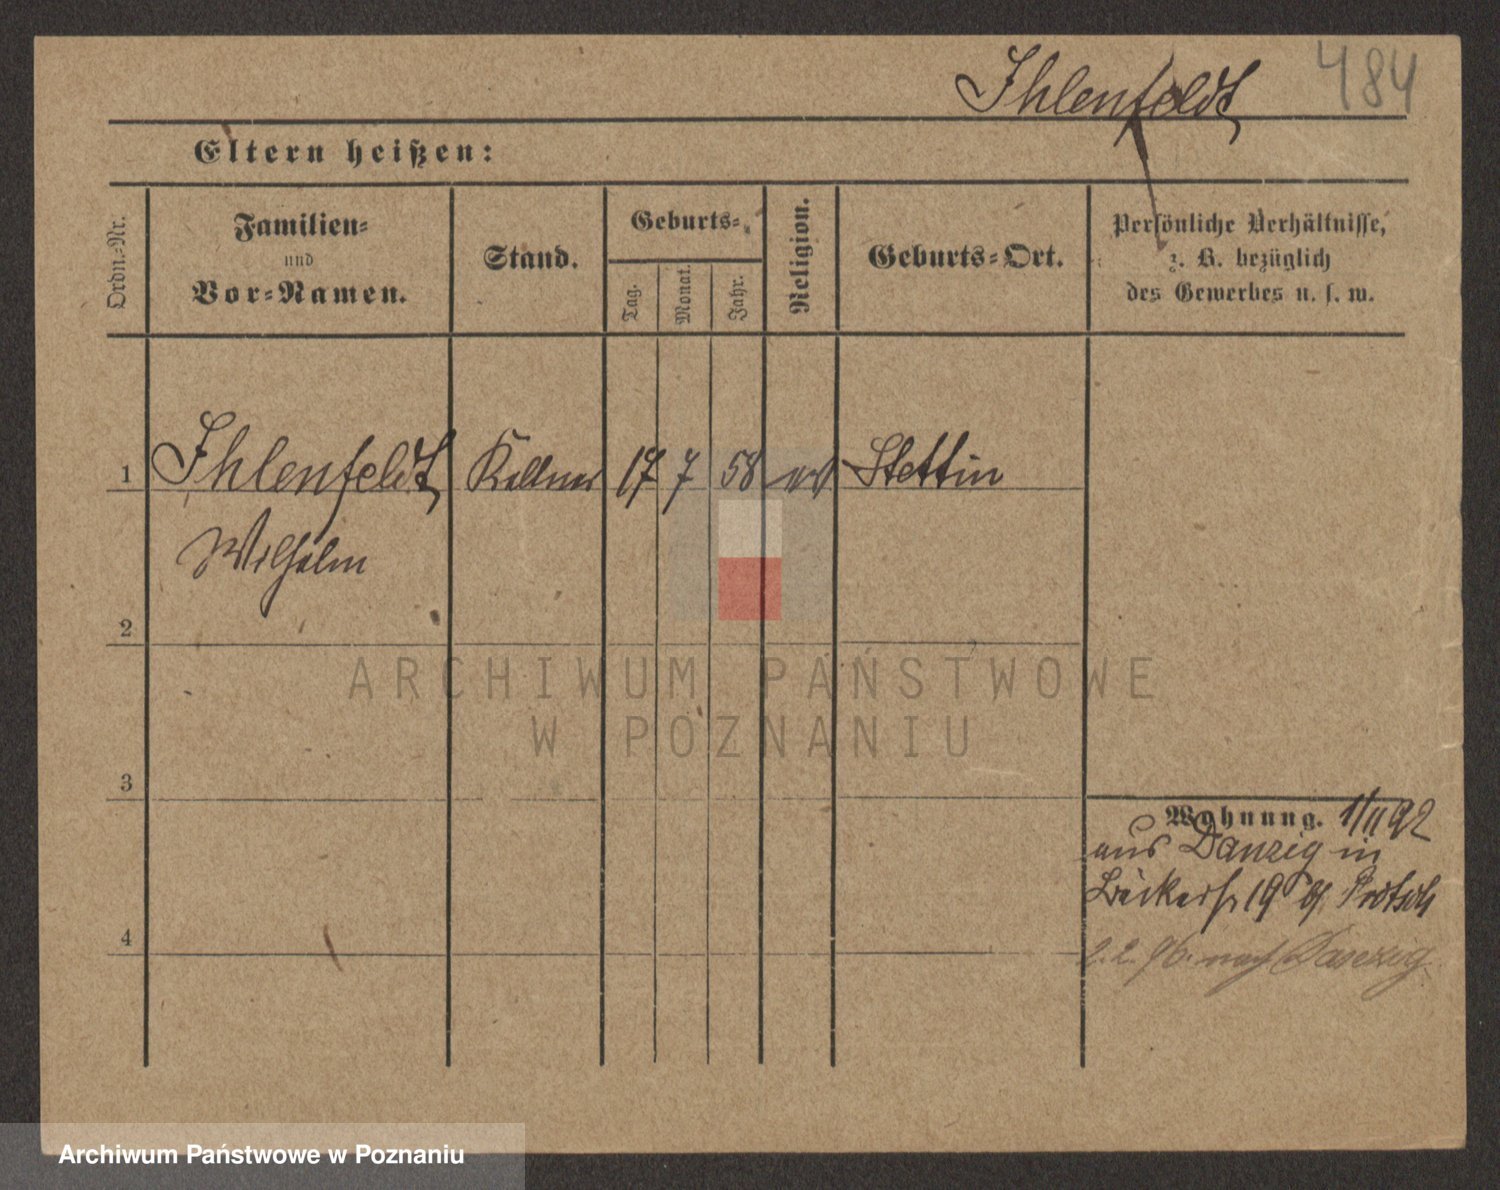 Ihlenfeldt 484
Eltern heißen:
Ordn.-Nr.
Familien-
und
Vor-Namen.
Stand.
Geburts-
Tag.
Monat.
Jahr.
Religion.
Geburts-Ort.
Persönliche Verhältnisse,
z. B. bezüglich
des Gewerbes u. s. w.
1 Ihlenfeldt Kellner 17 7 58 ev Stettin
Wilhelm
2
3
4
Wohnung. 1/11 92
aus Danzig in
Bäckerstr 19 b/ Protsch
2.2.96. nach Danzig
ARCHIWUM PAŃSTWOWE
W POZNANIU
Archiwum Państwowe w Poznaniu